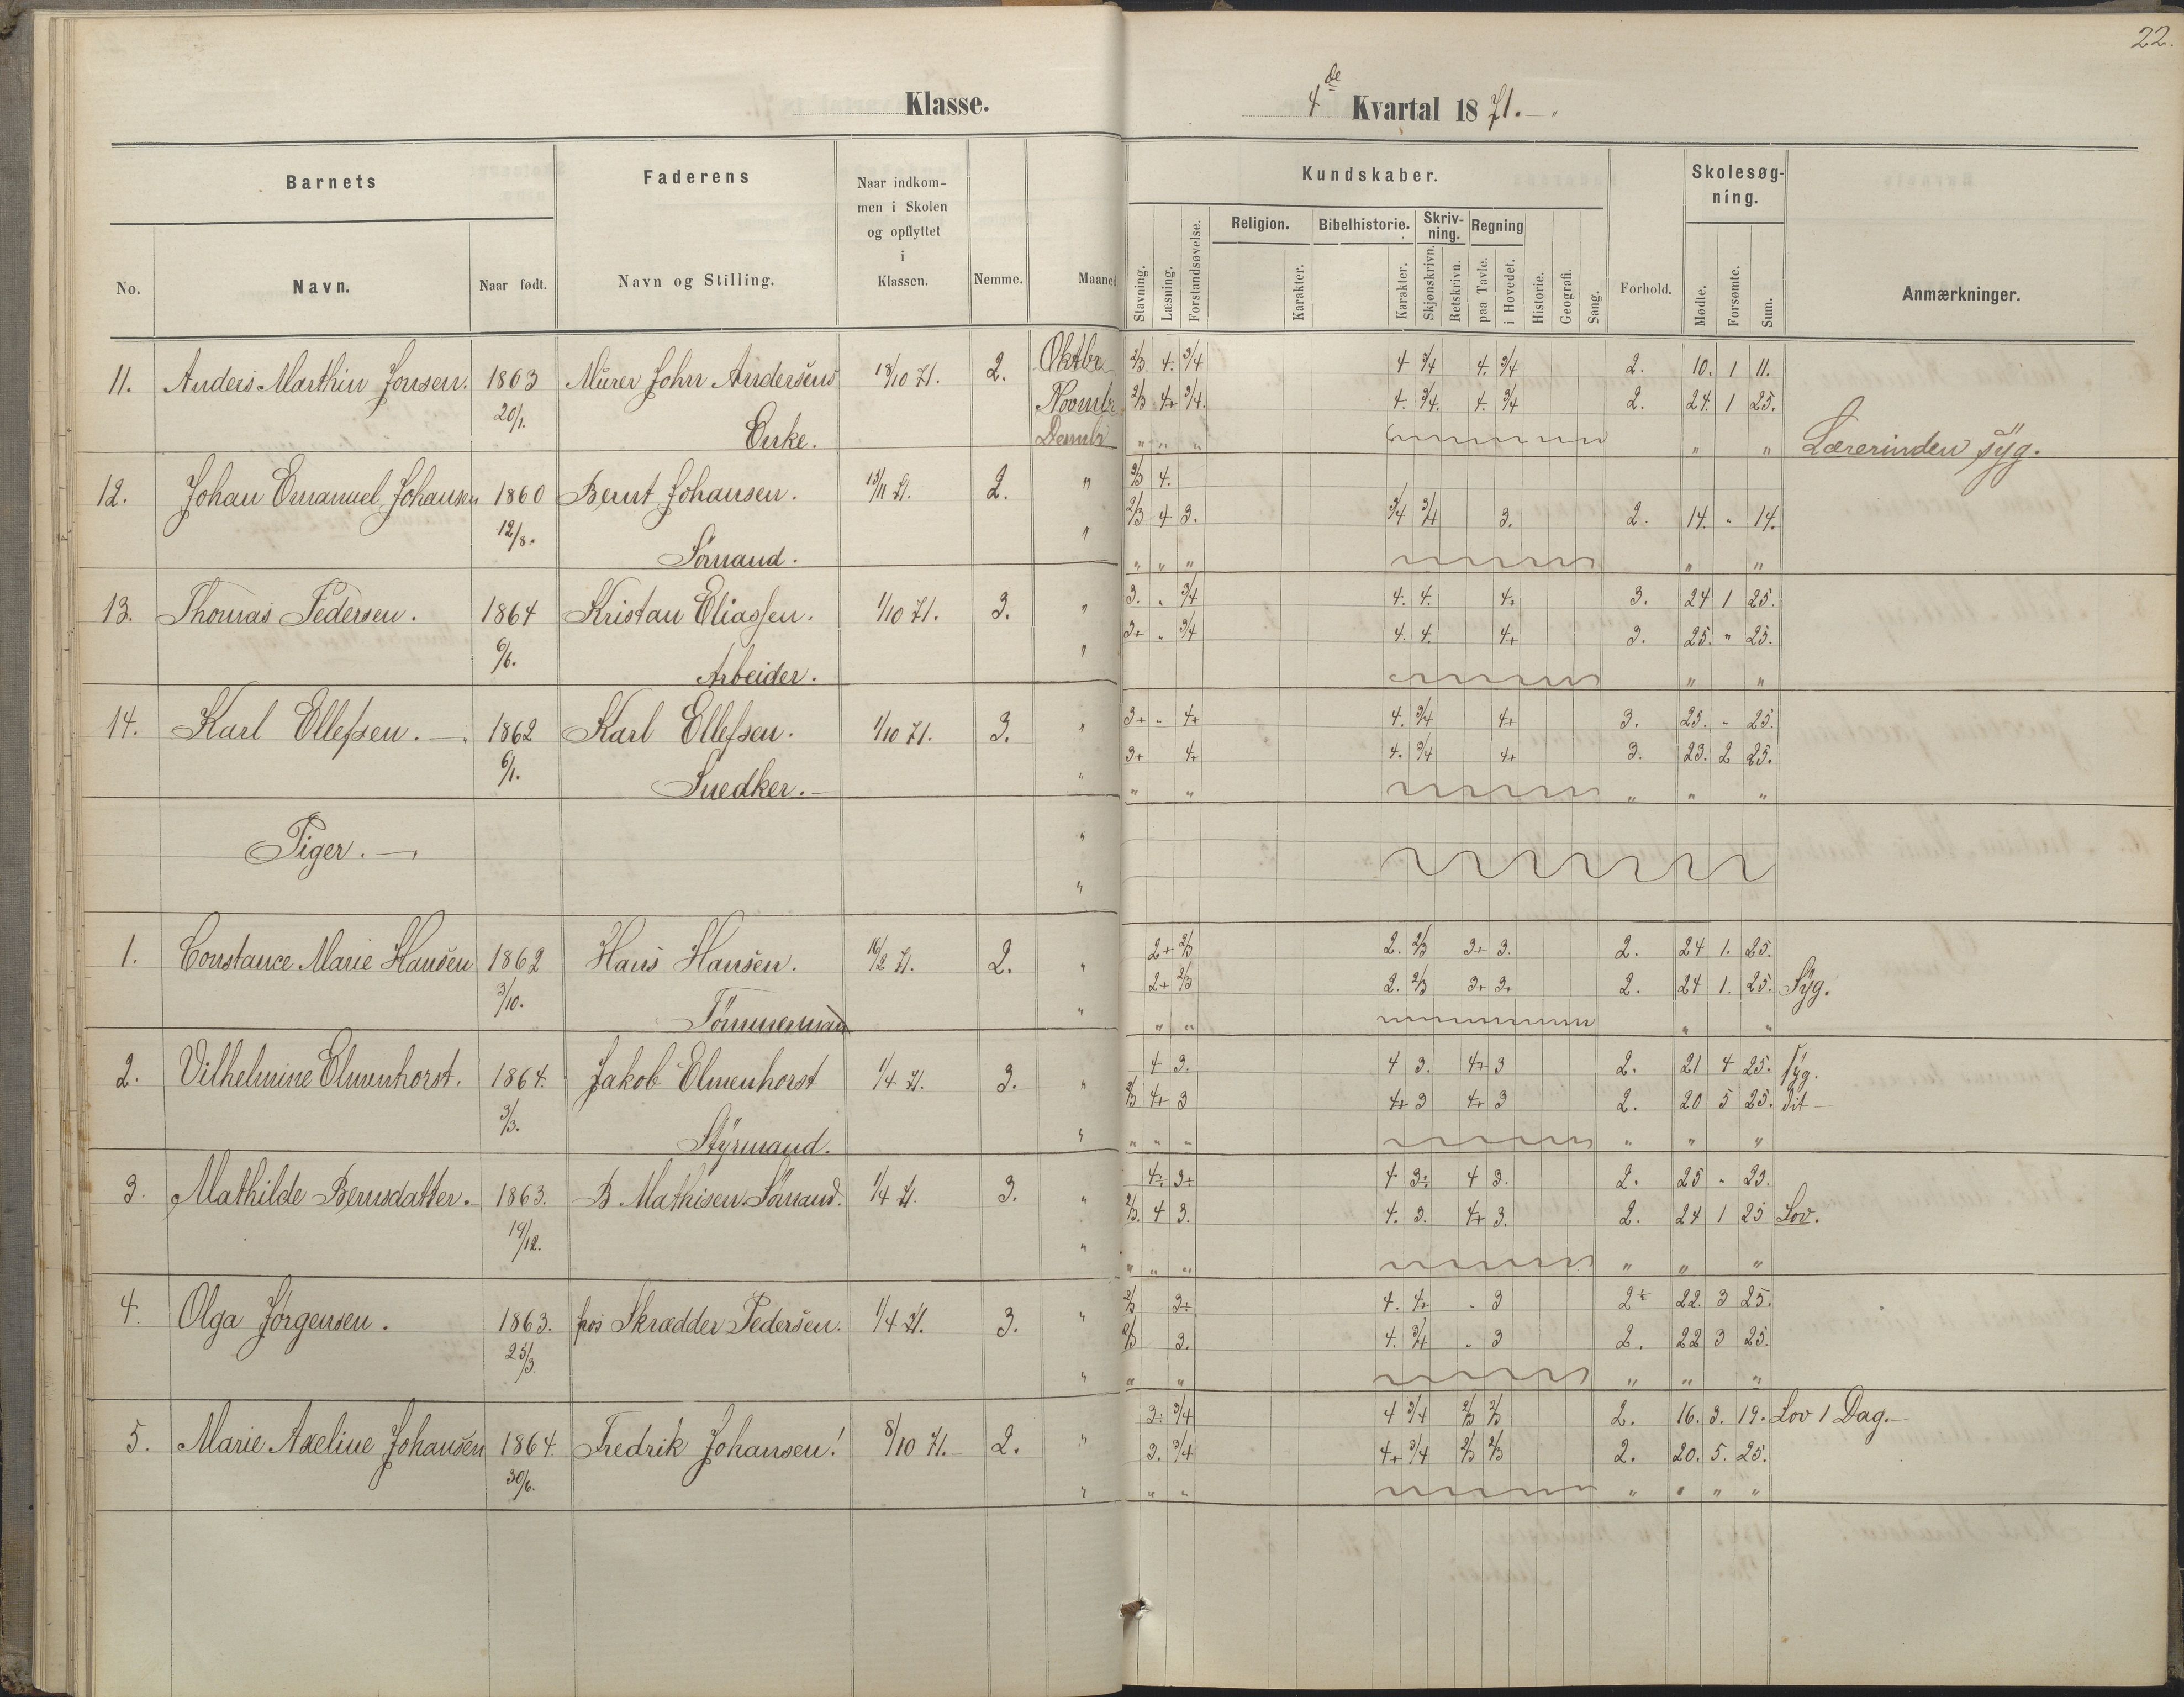 22.
Klasse.
4de Kvartal 1871.
Barnets
Faderens
Naar indkom-
men i Skolen
og opflyttet
i
Klassen.
No.
Navn.
Naar født.
Navn og Stilling.
Nemme.
Maaned
Kundskaber.
Skolesøg-
ning.
Stavning.
Læsning.
Forstandsøvelse.
Religion.
Bibelhistorie.
Skriv-
ning.
Regning
Karakter.
Karakter.
Skjønskrivn.
Retskrivn.
paa Tavle.
i Hovedet.
Historie.
Geografi.
Sang.
Forhold.
Mødte.
Forsømte.
Sum.
Anmærkninger.
11. Anders Marthin Jonsen. 1863 Murer John Andersens 13/10 71. 2. Oktbr 2/3 4. 3/4 4 3/4 4. 3/4 2. 10. 1 11.
20/1. Novmbr 2/3 4+ 3/4. 4. 3/4. 4. 3/4 2. 24. 1 25.
Enke. Dcmbr " " " " " Lærerinden syg.
12. Johan Emanuel Johansen 1860 Bernt Johansen. 13/11 71. 2. " 2/3 4.
12/8. " 2/3 4 3. 3/4 3/4 3. 2. 14. " 14.
Sömand. " " " " "
13. Thomas Pedersen. 1864 Kristan Eliassen. 1/10 71. 3. " 3. " 3/4 4. 4. 4. 3. 24 1 25.
6/6. " 3+ " 3/4 4. 4. 4+ 3. 25. " 25.
Arbeider. " "
14. Karl Ellefsen. 1862 Karl Ellefsen. 1/10 71. 3. " 3+ " 4+ 4. 3/4 4+ 3. 25. " 25.
6/1. 3+ 4+ 4. 3/4 4+ 3. 23. 2 25.
Snedker. " " " " " "
Piger. "
"
1. Constance Marie Hansen 1862 Hans Hansen. 16/2 71. 2. " 2+ 2/3 2. 2/3 3+ 3. 2. 24 1. 25.
3/10. 2+ 2/3 2. 2/3 3+ 3+ 2. 24 1. 25. Syg.
Tömmermand " " " " "
2. Vilhelmine Elmenhorst. 1864. Jakob Elmenhorst 1/4 71. 3. " 4 3. 4 3. 4+ 3 2. 21 4 25. Syg.
3/3. 2/3 4+ 3 4+ 3 4+ 3 2. 20 5 25. Dit
Styrmand. " " " " " " "
3. Mathilde Bernsdatter. 1863. B Mathisen. Sömand. 1/4 71. 3. " 4÷ 3÷ 4 3÷ 4 3. 2. 25 "
19/12. 2/3. 4 3. 4. 3. 4+ 3. 2. 24 1 25 Lov.
" " " " " " "
4. Olga Jörgensen. 1863. hos Skrædder Pedersen. 1/4 71. 3. " 2/3 3÷ 4. 4+ " 3 2÷ 22. 3 25.
25/3 2/3 3. 4. 3/4 " 3 2. 22 3 25.
" " " " " "
5. Marie Axeline Johansen 1864. Fredrik Johansen! 8/10 71. 2. " 3÷ 3/4 4 3/4 2/3 2/3 2. 16. 3. 19. Lov 1 Dag.
30/6. 3. 3/4 4+ 3/4 2/3 2/3 2. 20. 5. 25.
" " " " " " "